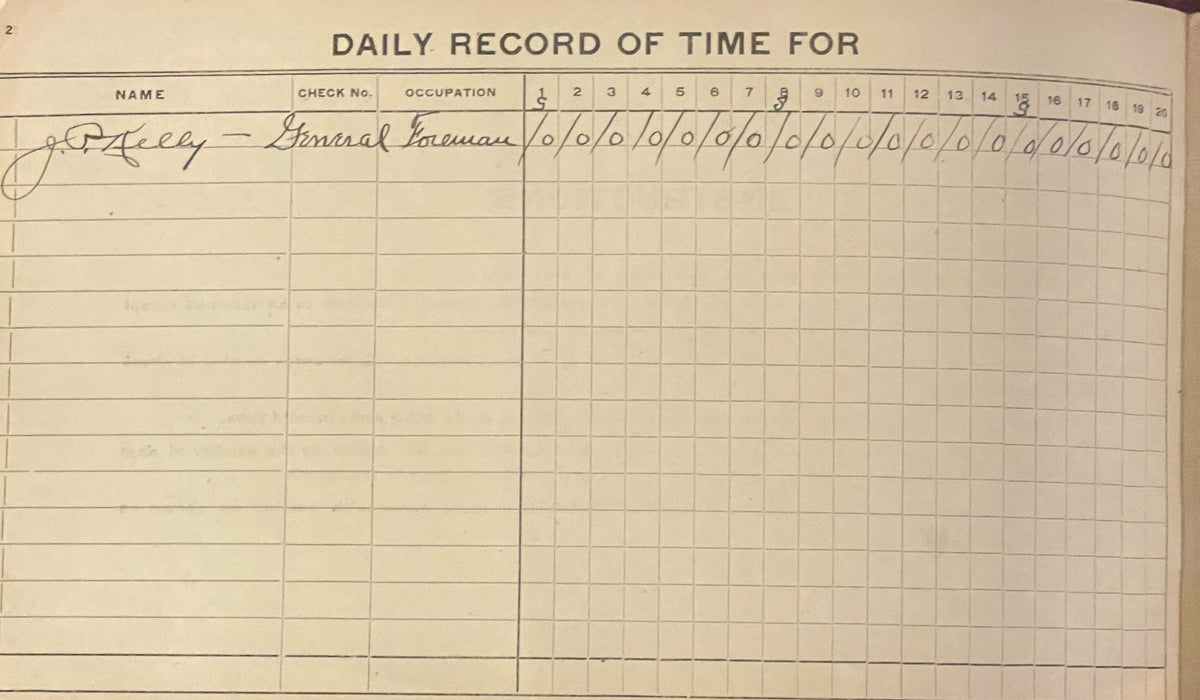 2
DAILY RECORD OF TIME FOR
NAME CHECK No. OCCUPATION 1 2 3 4 5 6 7 8 9 10 11 12 13 14 15 16 17 18 19 20
S S S
J. P. Kelly — General Foreman /0 /0 /0 /0 /0 /0 /0 /0 /0 /0 /0 /0 /0 /0 /0 /0 /0 /0 /0 /0